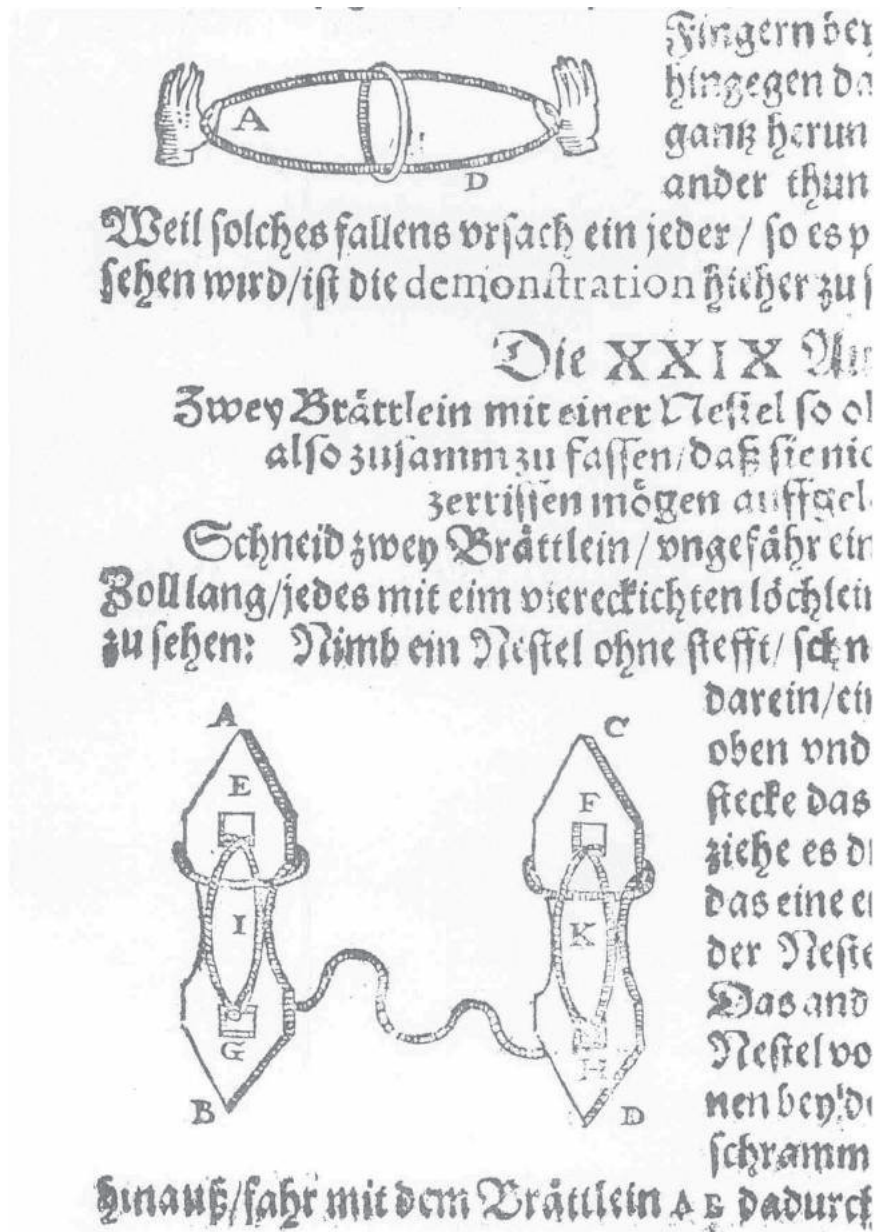 Fingern der
hingegen da
gantz herun
A
D
ander thun
Weil solches fallens vrsach ein jeder / so es p
sehen wird / ist die demonstration hieher zu s
Die XXIX Au
Zwey Brättlein mit einer Nestel so oh
also zusamm zu fassen / daß sie nic
zerrissen mögen auffgel
Schneid zwey Brättlein / vngefähr ein
Zoll lang / jedes mit eim viereckichten löchlein
zu sehen: Nimb ein Nestel ohne stefft / schn
A
C
E
F
I
K
G
H
B
D
darein / ein
oben vnd
stecke das
ziehe es d
das eine e
der Neste
Das and
Nestel vo
nen bey d
schramm
hinauß / fahr mit dem Brättlein A B dadurch